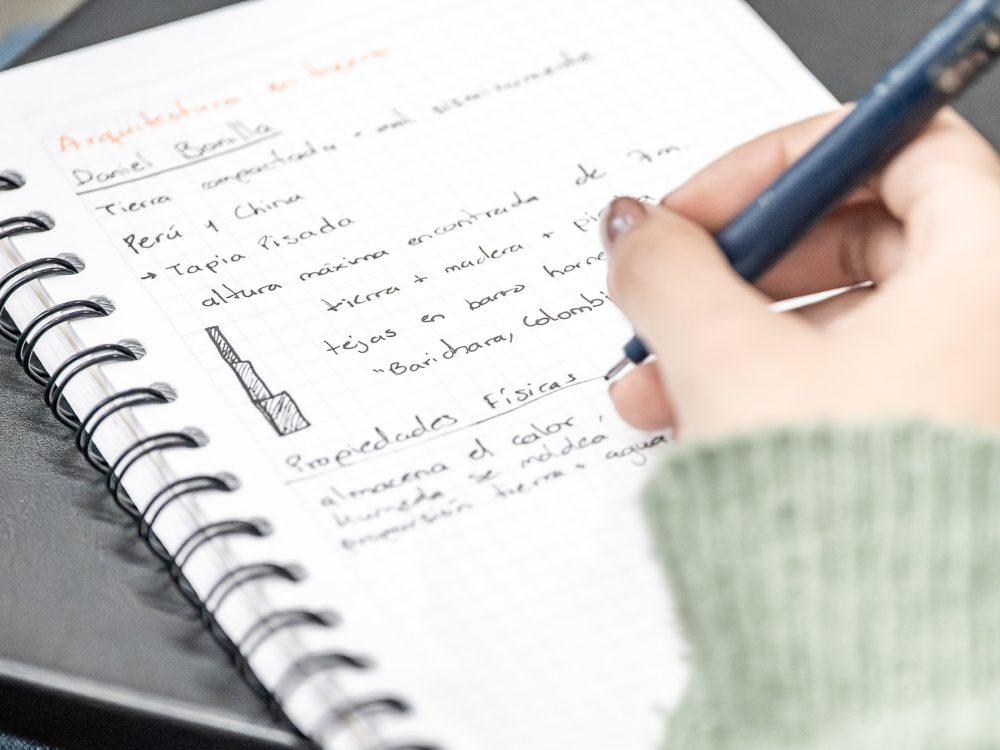 Arquitectura en tierra
Daniel Bonilla
Tierra compactada - mal
Perú y China
→ Tapia Pisada
altura máxima encontrada de 7m.
tierra + madera +
tejas en barro
"Barichara, Colombi
Propiedades Físicas
almacena el calor,
Humeda se moldea
proporsión tierra + agua